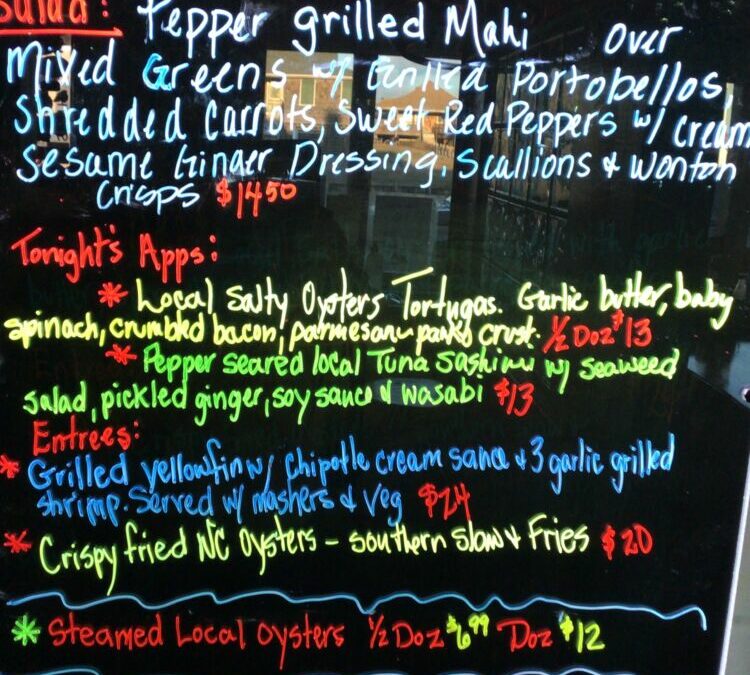 Salad: Pepper grilled Mahi over
Mixed Greens w/ Grilled Portobellos
Shredded Carrots, Sweet Red Peppers w/ Cream
Sesame Ginger Dressing, Scallions & Wonton
Crisps $14.50
Tonight's Apps:
* Local Salty Oysters Tortugas. Garlic butter, baby
spinach, crumbled bacon, parmesan panko crust. 1/2 Doz $13
* Pepper seared local Tuna Sashimi w/ seaweed
salad, pickled ginger, soy sauce & wasabi $13
Entrees:
* Grilled yellowfin w/ chipotle cream sauce & 3 garlic grilled
shrimp. Served w/ mashers & veg $24
* Crispy fried NC Oysters - southern slaw & Fries $20
* Steamed Local Oysters 1/2 Doz $6.99 Doz $12